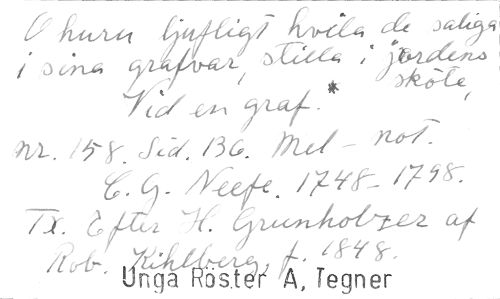 O huru ljufligt hvila de saliga
i sina grafvar, stilla i jordens
sköte,
Vid en graf. *
nr. 158. Sid. 136. Mel - not.
C. G. Neefe. 1748-1798.
Tx. Efter H. Grunholzer af
Rob. Kihlberg, f. 1848.
Unga Röster A, Tegner